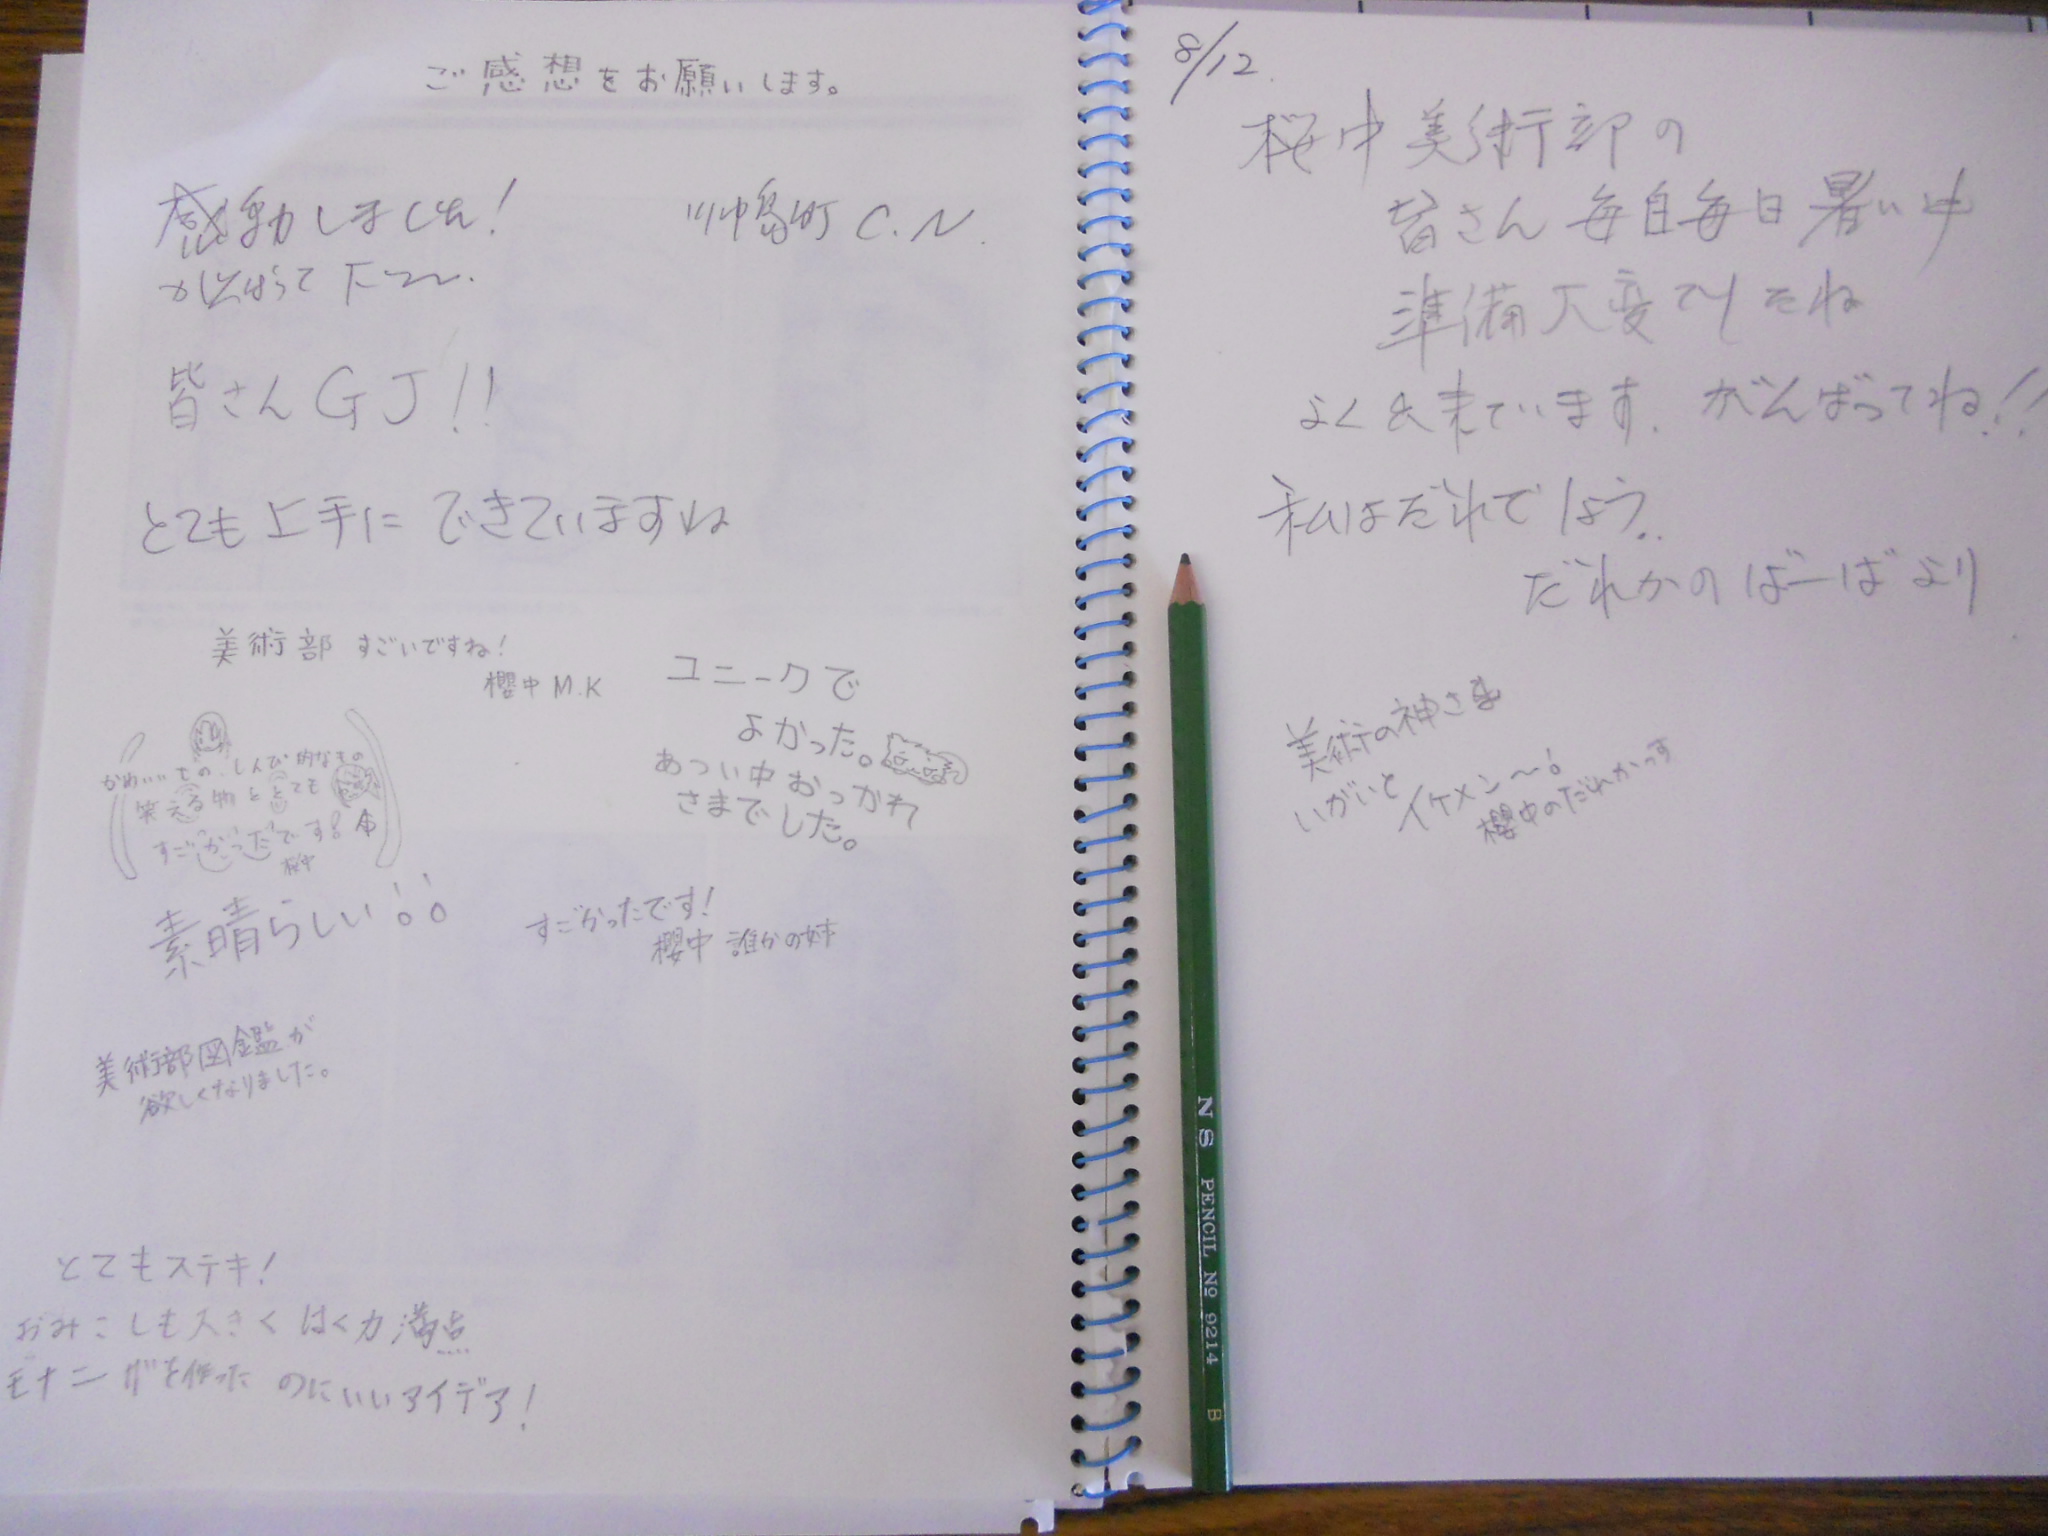 ご感想をお願いします。
感動しました!
川中島町 C.N.
がんばって下さい.
皆さん GJ!!
とても上手に できていますね
美術部 すごいですね!
櫻中 M.K
ユニークで
よかった。
あつい中おつかれ
さまでした。
かわいいもの、しんぴ的なもの
笑える物ととても
すごかったです!
桜中
素晴らしい!!
すごかったです!
櫻中 誰かの妹
美術部図鑑が
欲しくなりました。
とてもステキ!
おみこしも大きく はく力満点
を作った のにいいアイデア!
8/12.
桜中美術部の
皆さん 毎日毎日暑い中
準備大変でしたね
よく出来ています. がんばってね!!
私はだれでしょう..
だれかのばーばより
美術の神さま
いがいと イケメン〜!
櫻中のだれかっす
NS PENCIL No 9214 B